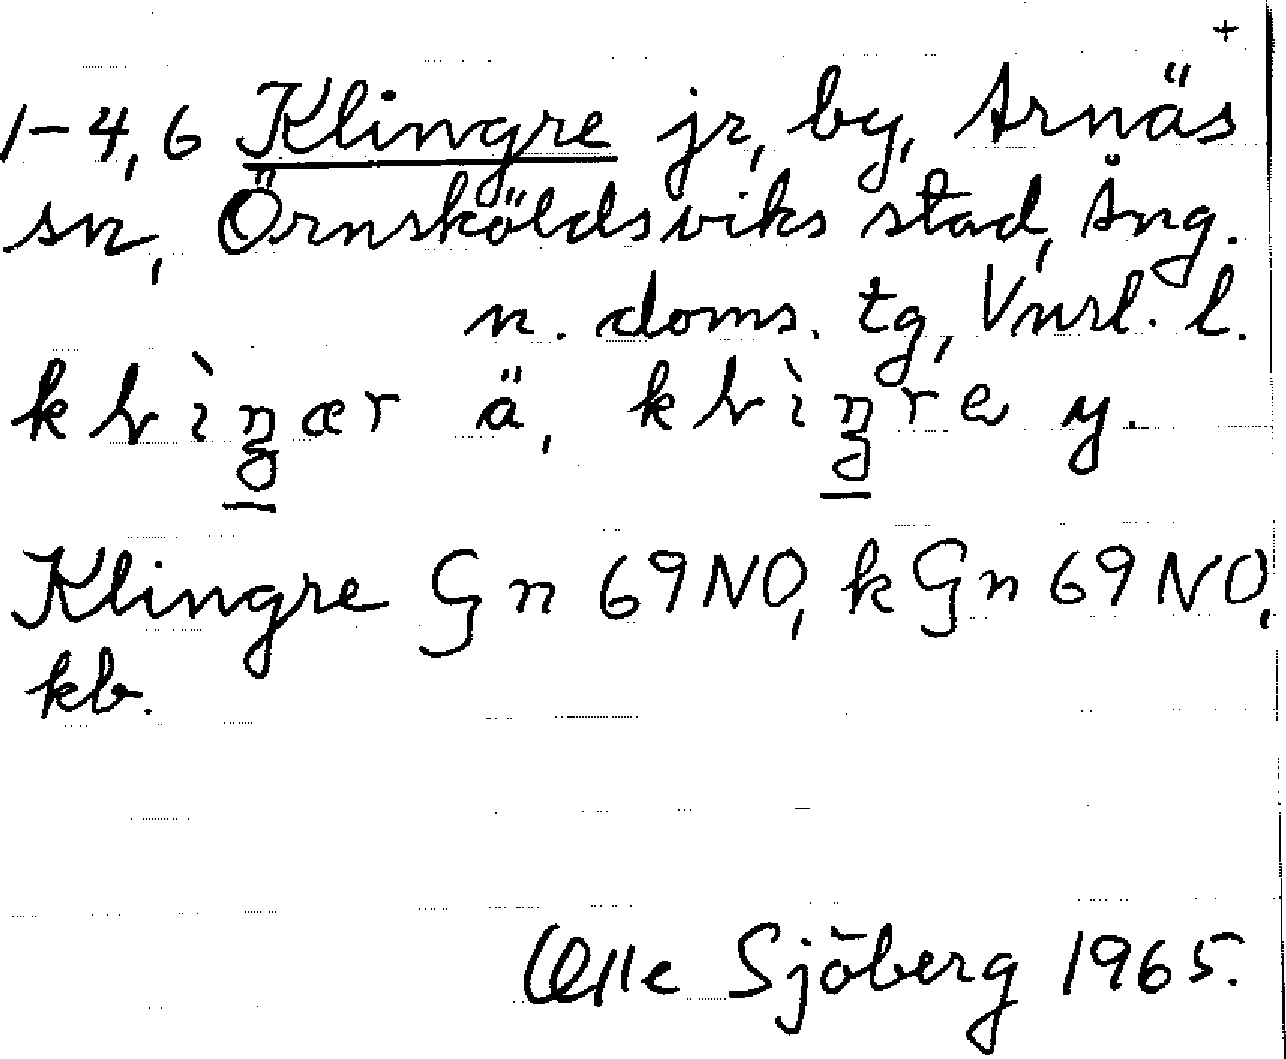 +
1-4,6 Klingre jr, by, Arnäs
sn, Örnsköldsviks stad, Ång.
n. doms. tg, Vnrl. l.
klìŋær ä, klìŋre y.
Klingre Gn 69 NO, k Gn 69 NO,
kb.
Olle Sjöberg 1965.